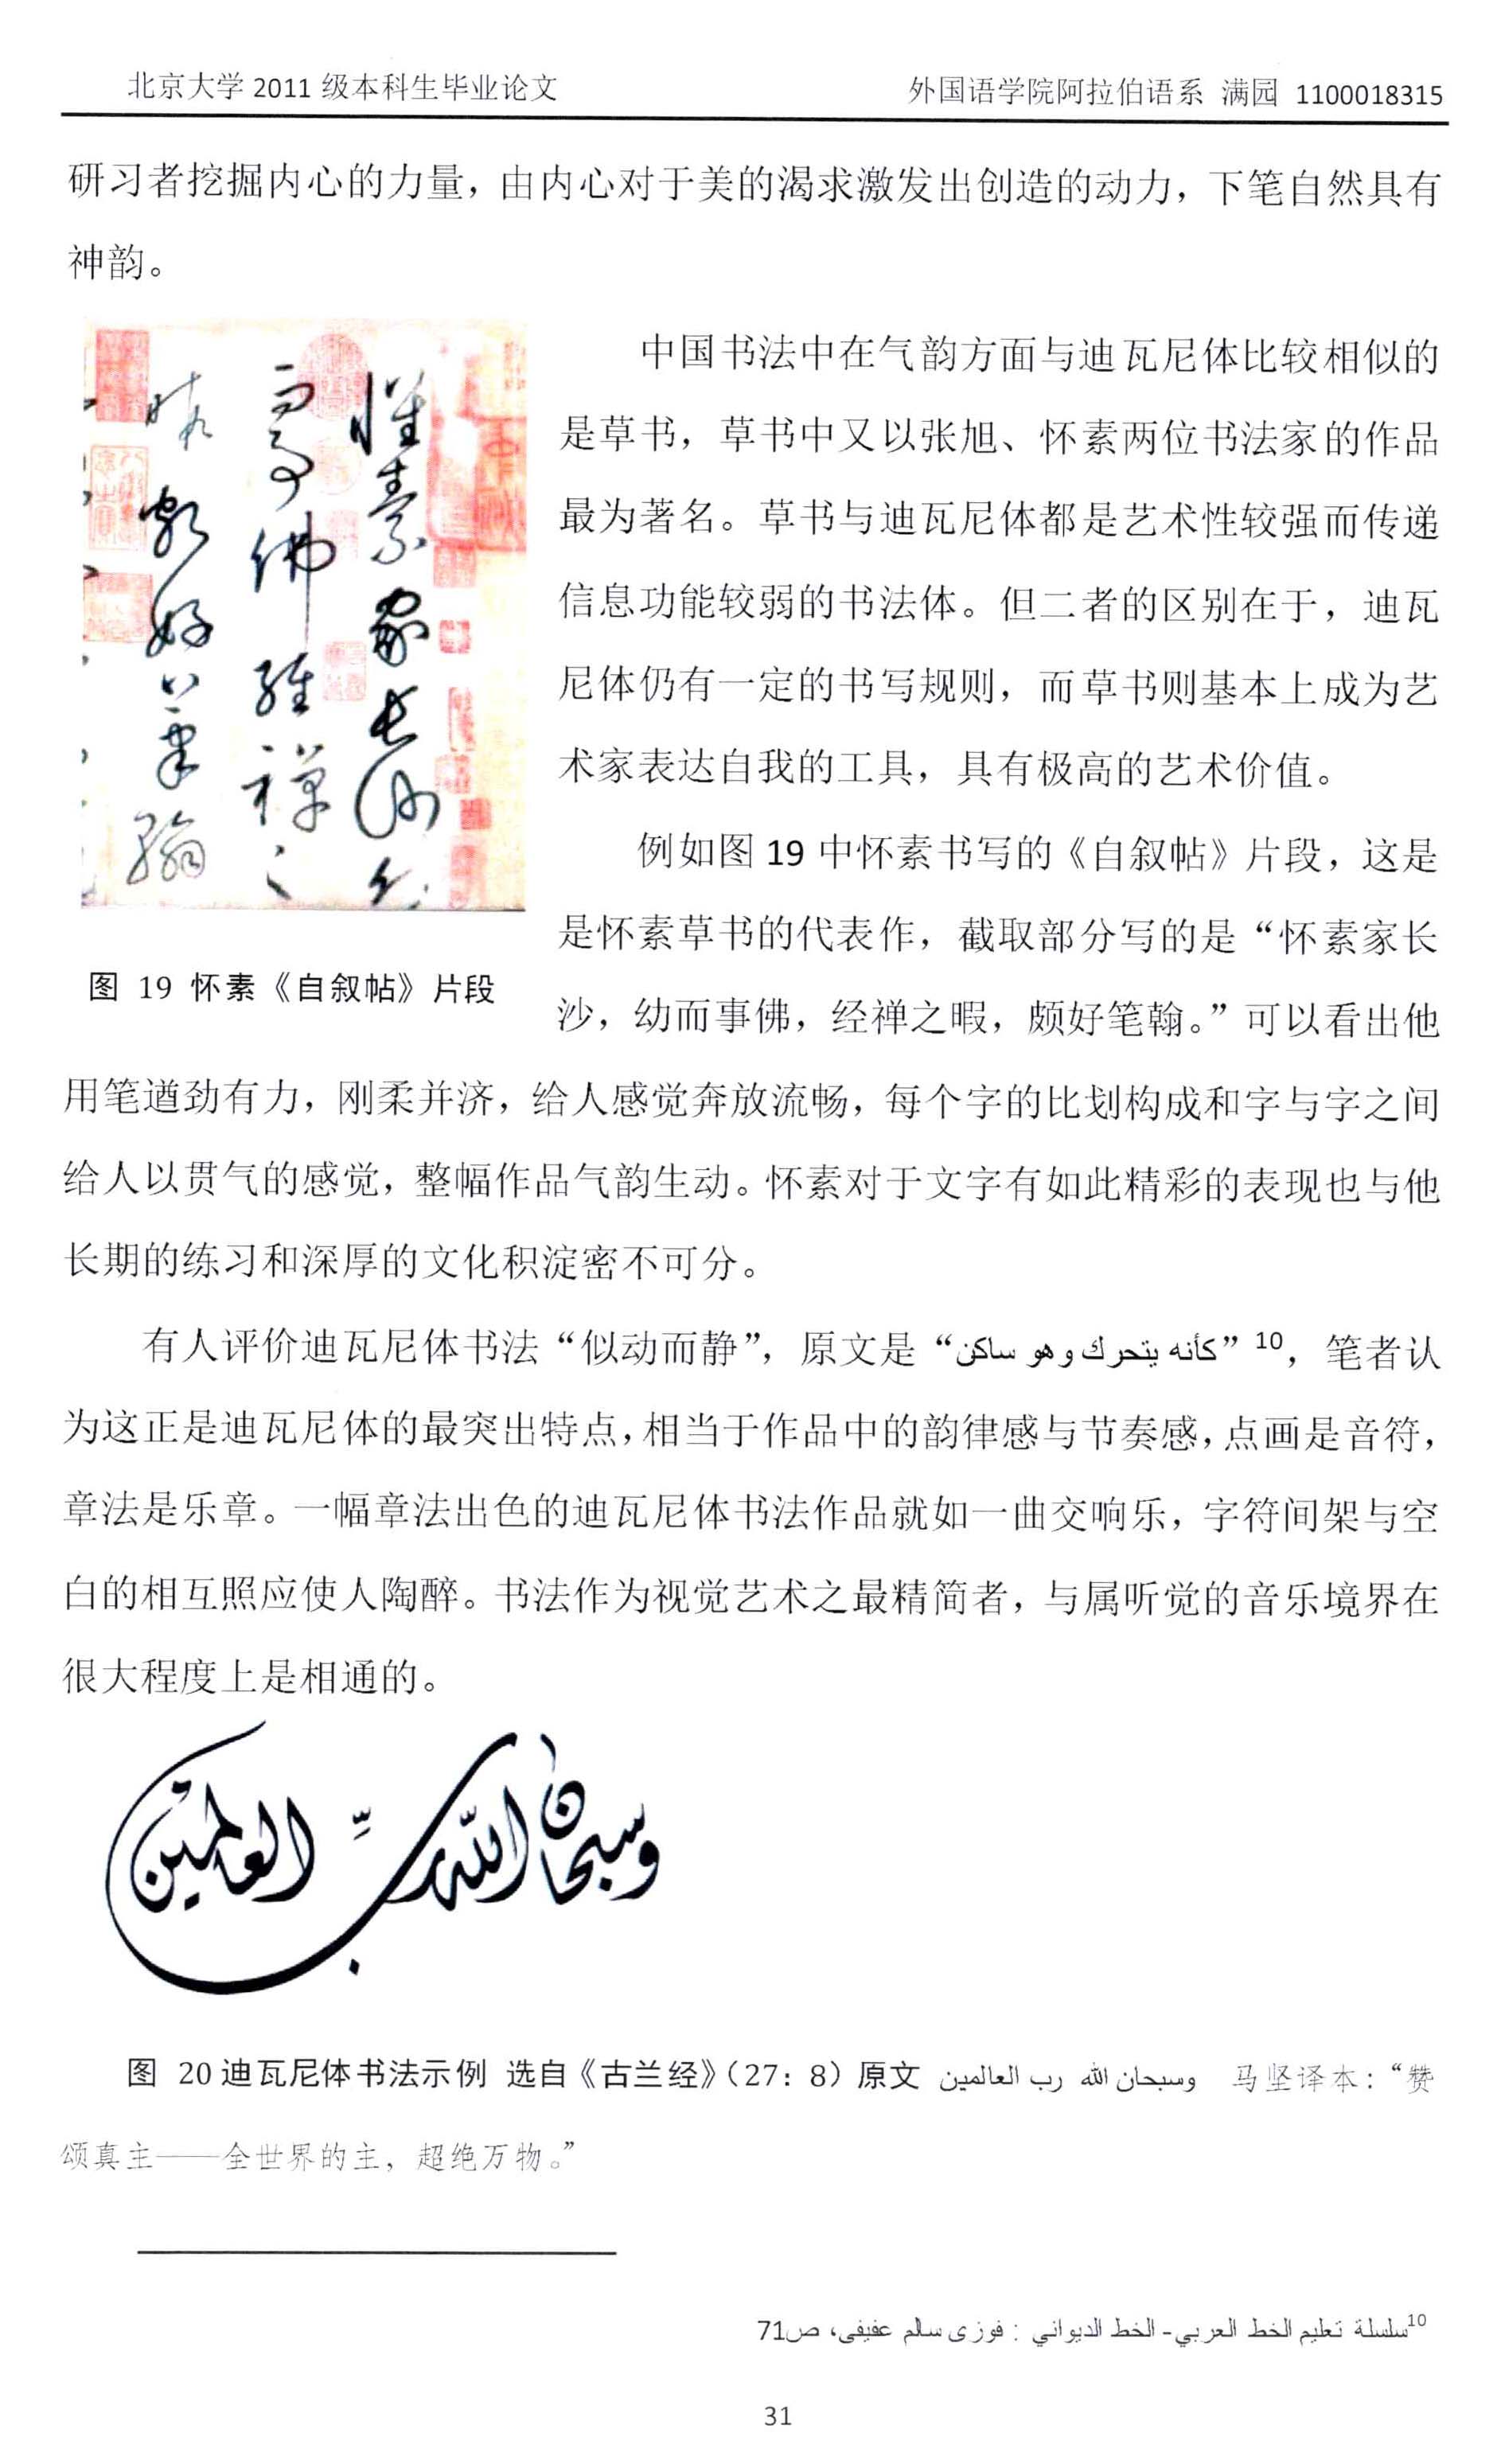 北京大学 2011 级本科生毕业论文
外国语学院阿拉伯语系 满园 1100018315
研习者挖掘内心的力量，由内心对于美的渴求激发出创造的动力，下笔自然具有
神韵。
中国书法中在气韵方面与迪瓦尼体比较相似的
是草书，草书中又以张旭、怀素两位书法家的作品
最为著名。草书与迪瓦尼体都是艺术性较强而传递
信息功能较弱的书法体。但二者的区别在于，迪瓦
尼体仍有一定的书写规则，而草书则基本上成为艺
术家表达自我的工具，具有极高的艺术价值。
例如图 19 中怀素书写的《自叙帖》片段，这是
是怀素草书的代表作，截取部分写的是“怀素家长
沙，幼而事佛，经禅之暇，颇好笔翰。”可以看出他
怀素家长沙幼
而事佛经禅之
暇颇好笔翰
图 19 怀素《自叙帖》片段
用笔遒劲有力，刚柔并济，给人感觉奔放流畅，每个字的比划构成和字与字之间
给人以贯气的感觉，整幅作品气韵生动。怀素对于文字有如此精彩的表现也与他
长期的练习和深厚的文化积淀密不可分。
有人评价迪瓦尼体书法“似动而静”，原文是“كأنه يتحرك وهو ساكن”10，笔者认
为这正是迪瓦尼体的最突出特点，相当于作品中的韵律感与节奏感，点画是音符，
章法是乐章。一幅章法出色的迪瓦尼体书法作品就如一曲交响乐，字符间架与空
白的相互照应使人陶醉。书法作为视觉艺术之最精简者，与属听觉的音乐境界在
很大程度上是相通的。
وسبحان الله رب العالمين
图 20 迪瓦尼体书法示例 选自《古兰经》（27：8）原文 وسبحان الله رب العالمين 马坚译本：“赞
颂真主——全世界的主，超绝万物。”
10سلسلة تعليم الخط العربي- الخط الديواني : فوزى سالم عفيفى، ص71
31